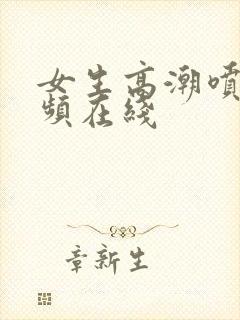 女生高潮噴
頻在綫
章新生